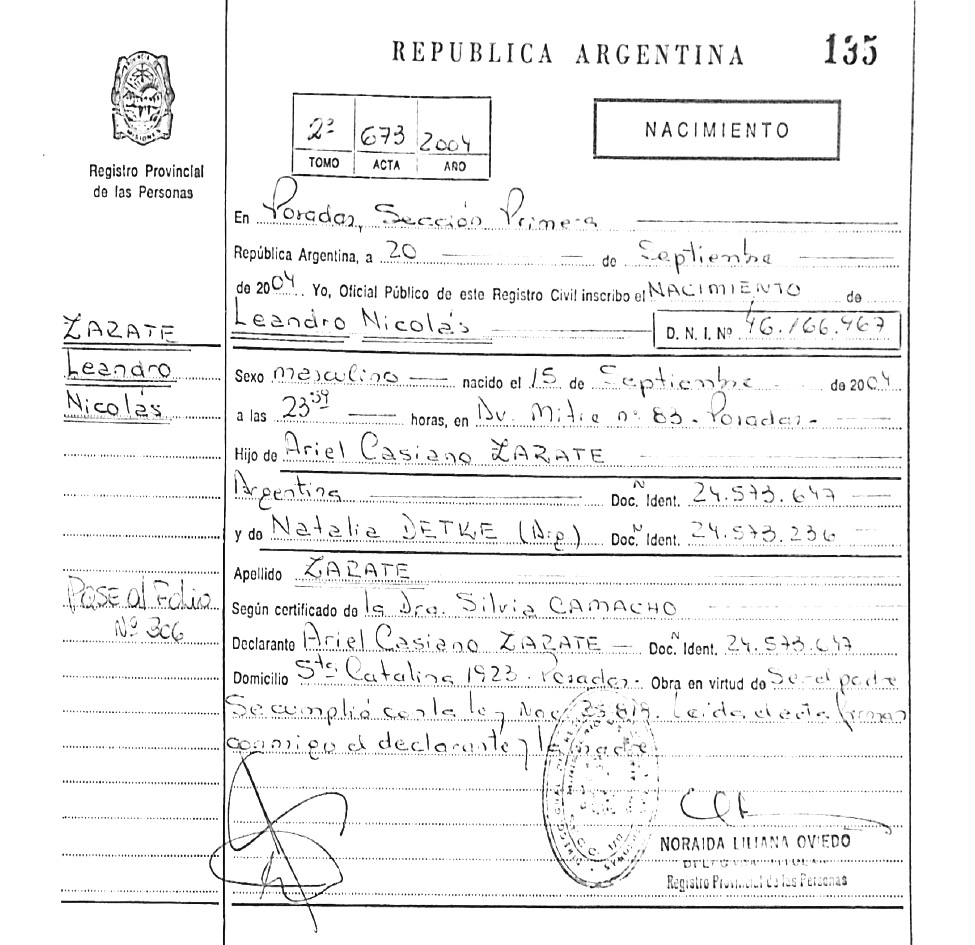 REPUBLICA ARGENTINA 135
2º 673 2004
TOMO ACTA AÑO
NACIMIENTO
Registro Provincial
de las Personas
En Posadas, Sección Primera
República Argentina, a 20 de Septiembre
de 2004 Yo, Oficial Público de este Registro Civil inscribo el NACIMIENTO de
Leandro Nicolás D. N. I. Nº 46.166.467
ZARATE
Leandro
Nicolás
Sexo masculino nacido el 15 de Septiembre de 2004
a las 23 59 horas, en Av. Mitre nº 83 - Posadas -
Hijo de Ariel Casiano ZARATE
Argentina Doc. Ident. N 24.573.647
y de Natalia DETKE (Arg) Doc. Ident. N 24.573.236
Apellido ZARATE
Pase al Folio
Nº 306
Según certificado de la Dra. Silvia CAMACHO
Declarante Ariel Casiano ZARATE Doc. Ident. N 24.573.647
Domicilio Sta Catalina 1923 - Posadas - Obra en virtud de Ser el padre
Se cumplió con la ley Nac. 25.819. Leída el acta firman
conmigo el declarante y la madre.
NORAIDA LILIANA OVIEDO
Registro Provincial de las Personas